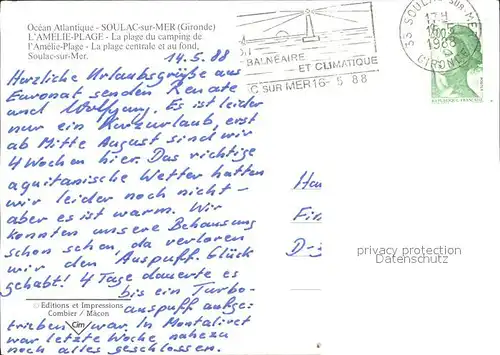 Océan Atlantique - SOULAC-sur-MER (Gironde)
L'AMÉLIE-PLAGE - La plage du camping de
l'Amélie-Plage - La plage centrale et au fond,
Soulac-sur-Mer.
14.5.88
Herzliche Urlaubsgrüße aus
Euronat senden Renate
und Wolfgang. Es ist leider
nur ein Kurzurlaub, erst
ab Mitte August sind wir
4 Wochen hier. Das richtige
aquitanische Wetter hatten
wir leider noch nicht -
aber es ist warm. Wir
konnten unsere Behausung
schon sehen, da verloren
wir den Auspuff. Glück
gehabt! 4 Tage dauerte es
bis ein Turbo-
auspuff aufge-
trieben war. In Montalivet
war letzte Woche nahezu
noch alles geschlossen.
© Editions et Impressions
Combier / Mâcon
Cim
BALNÉAIRE
ET CLIMATIQUE
C SUR MER 16- 5 88
33 SOULAC-SUR-MER
17 H
1988
GIRONDE
Fir
privacy protection
Datenschutz